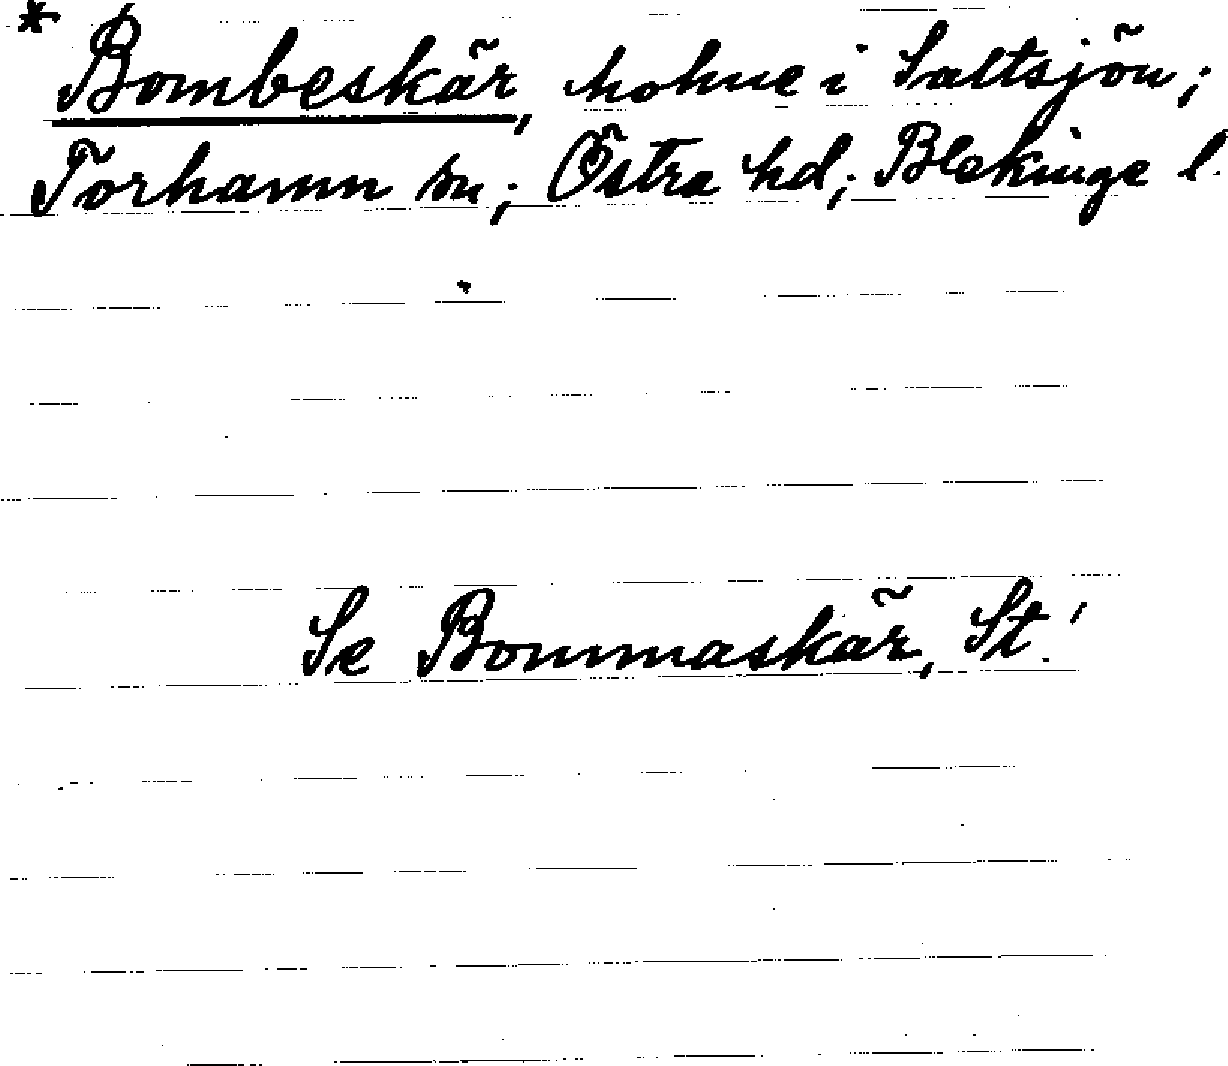 * Bombeskär, holme i Saltsjön;
Torhamn sn; Östra hd; Blekinge l.
Se Bommaskär, St.